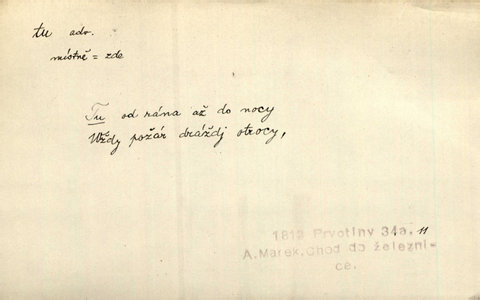 tu adv.
místně = zde
Tu od rána až do nocy
Wždy požár dráždj otrocy,
1813 Prvotiny 34a, 11
A. Marek, Chod do železni-
ce.